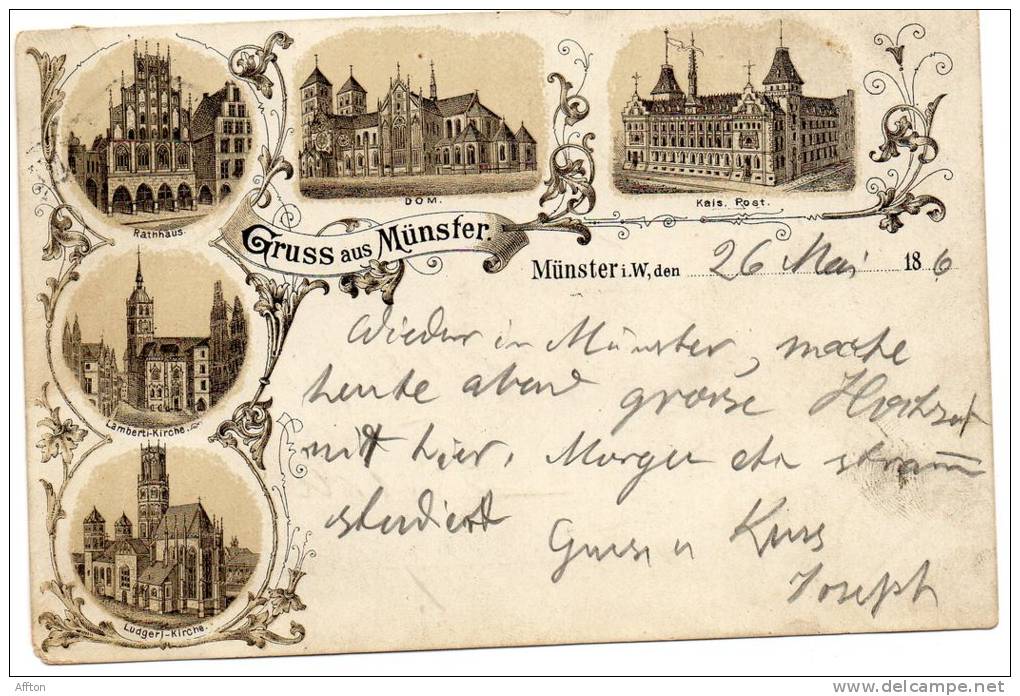 Rathhaus.
DOM.
Kais. Post.
Gruss aus Münster.
Lamberti-Kirche.
Ludgeri-Kirche.
Münster i.W, den 26 Mai 18 6
Wieder in Münster, mache
heute abend grosse Hochzeit
mit hier, Morgen
studiert
Gruss u Kuss
Joseph
Affton
delcampe.net